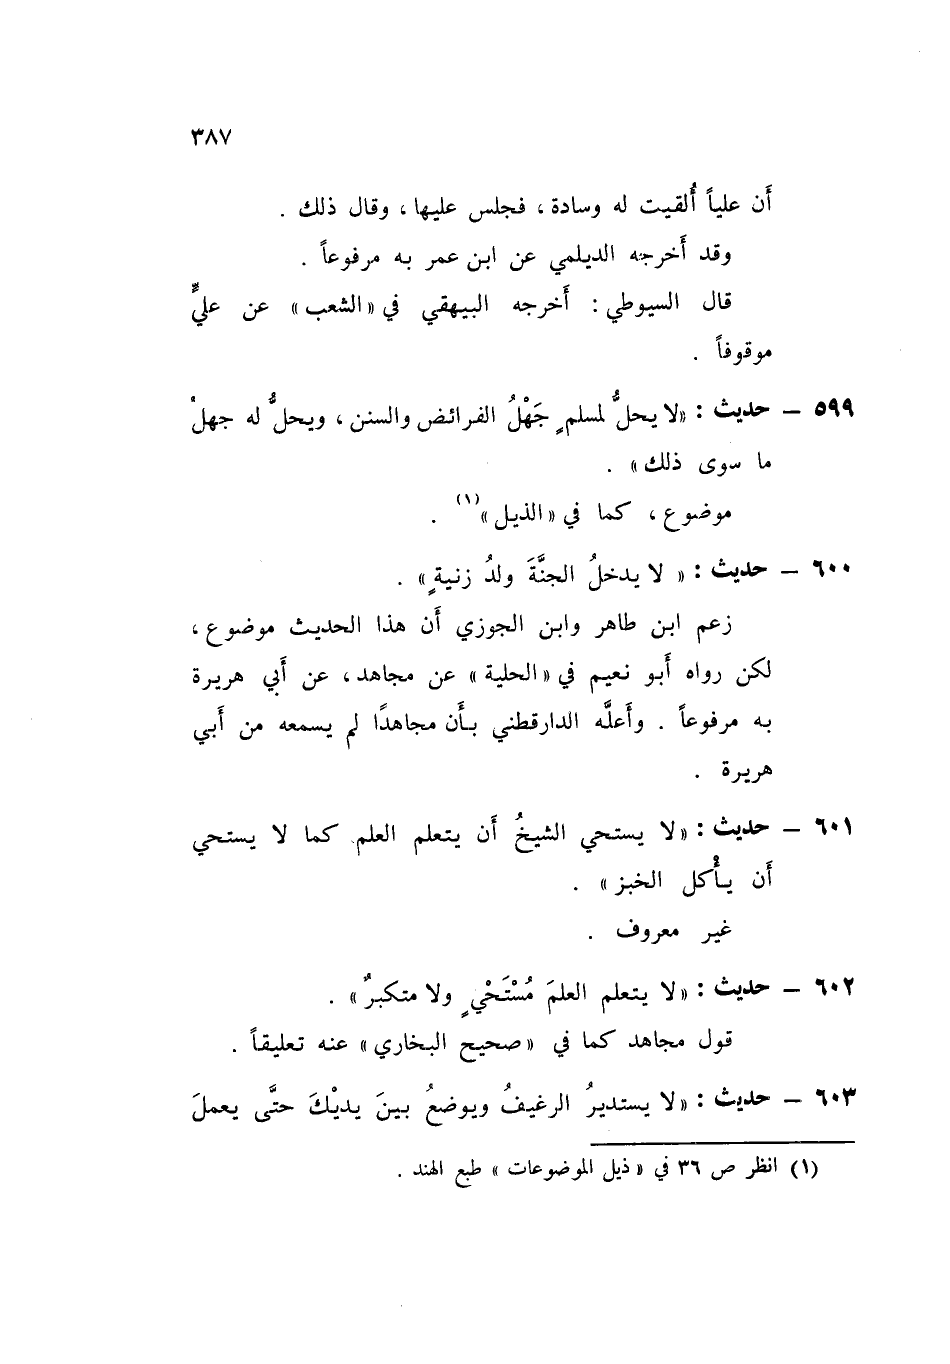 ٣٨٧
أن علياً أُلقيت له وسادة ، فجلس عليها ، وقال ذلك .
وقد أَخرجه الديلمي عن ابن عمر به مرفوعاً .
قال السيوطي : أَخرجه البيهقي في «الشعب» عن عليٍّ
موقوفاً .
٥٩٩ – حديث : «لا يحلُّ لمسلمٍ جَهْلُ الفرائض والسنن ، ويحلُّ له جهلُ
ما سوى ذلك» .
موضوع ، كما في «الذيل»(١) .
٦٠٠ – حديث : « لا يدخلُ الجنَّةَ ولدُ زنيةٍ» .
زعم ابن طاهر وابن الجوزي أَن هذا الحديث موضوع ،
لكن رواه أَبو نعيم في «الحلية» عن مجاهد ، عن أَبي هريرة
به مرفوعاً . وأَعلَّه الدارقطني بأَن مجاهدًا لم يسمعه من أَبي
هريرة .
٦٠١ – حديث : «لا يستحي الشيخُ أَن يتعلم العلم كما لا يستحي
أَن يأْكل الخبز» .
غير معروف .
٦٠٢ – حديث : «لا يتعلم العلمَ مُسْتَحْيٍ ولا متكبرٌ» .
قول مجاهد كما في «صحيح البخاري» عنه تعليقاً .
٦٠٣ – حديث : «لا يستديرُ الرغيفُ ويوضعُ بينَ يديْكَ حتَّى يعملَ
(١) انظر ص ٣٦ في «ذيل الموضوعات» طبع الهند .